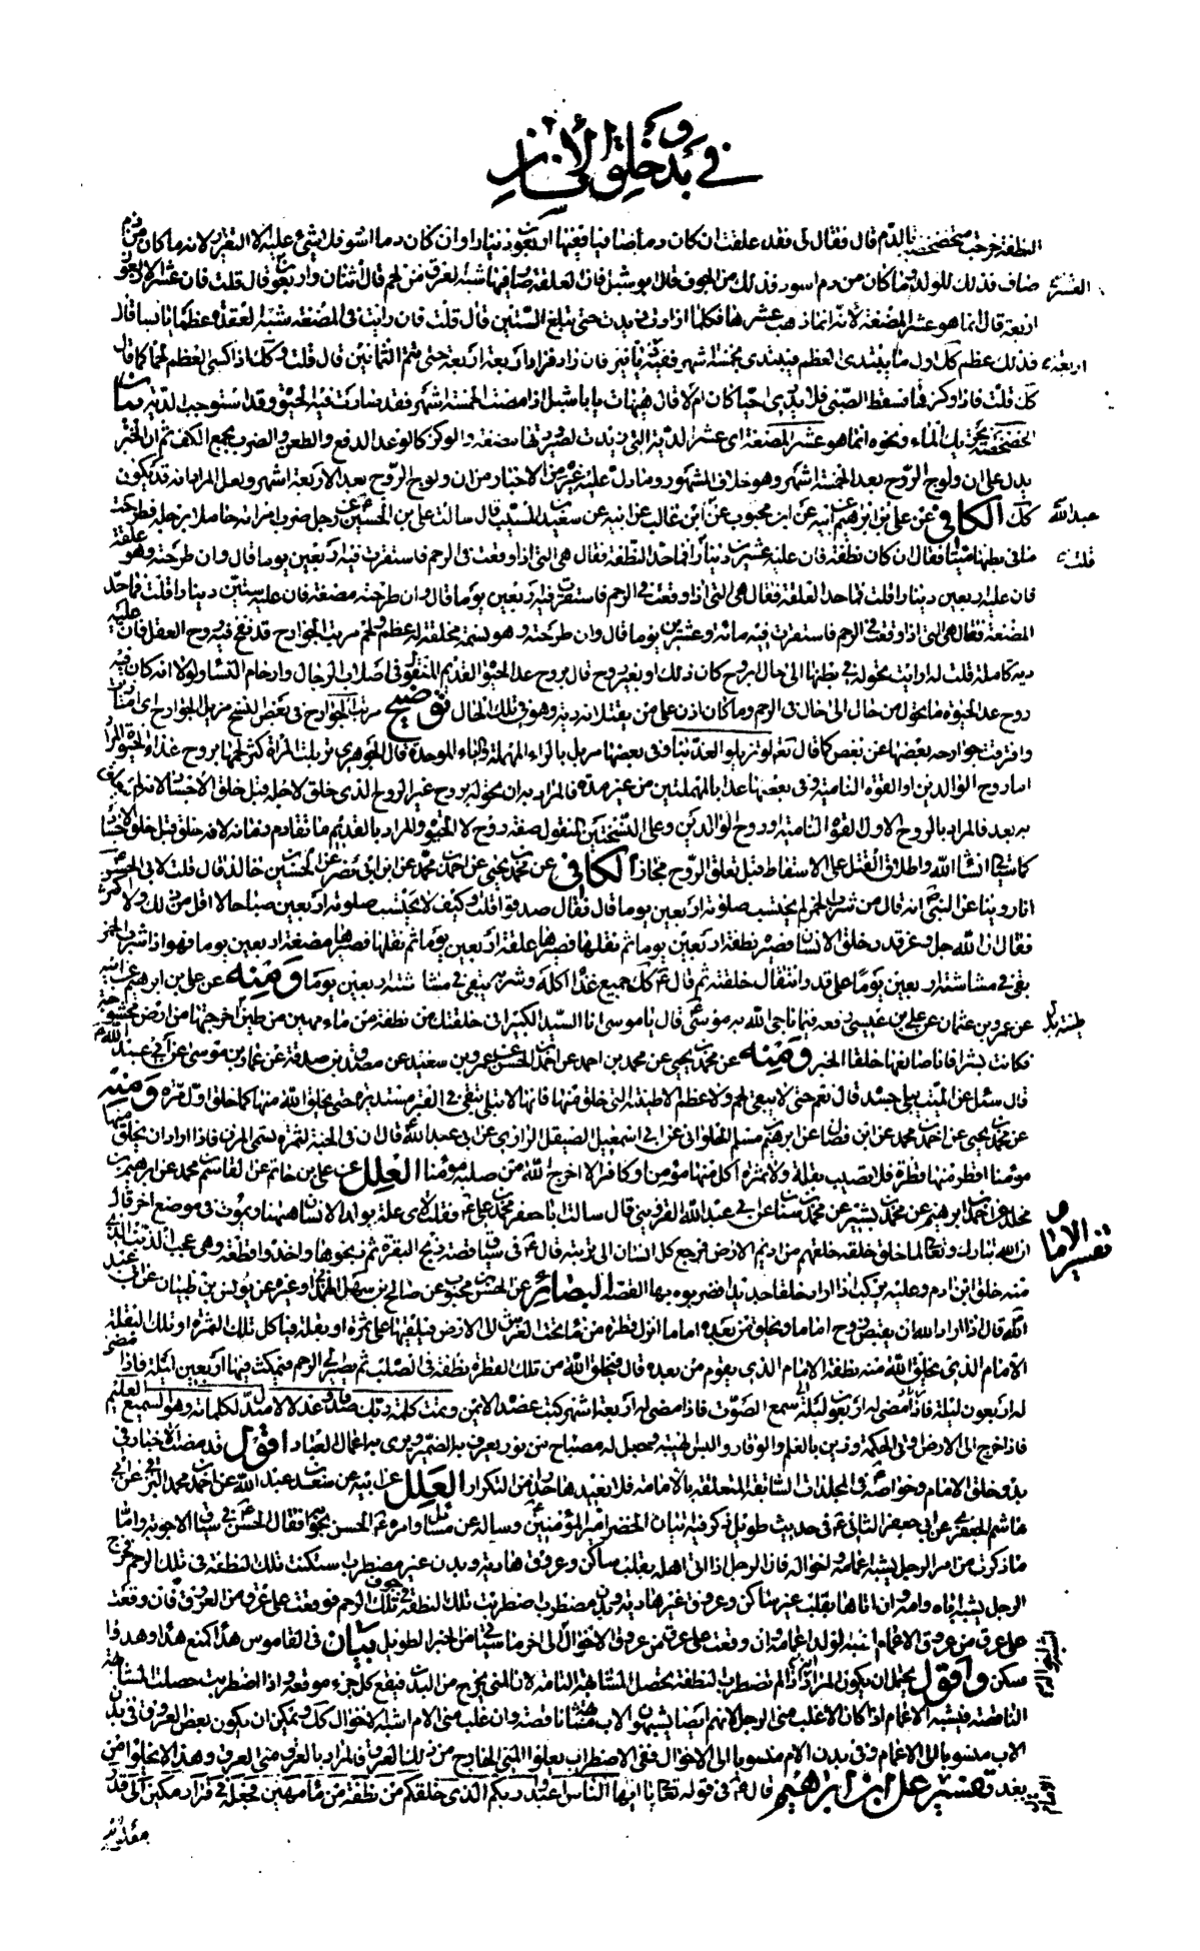 في بدء خلق الإنسان
النطفة فخرجت متخضخضة بالدم قال فقال لي فقد علقت ان كان دما صافيا ففيها اربعون دينارا وان كان دما اسود فلا شيء عليه الا التعزير لانه ما كان من دم
صاف فذلك للولد وما كان من دم اسود فذلك من الجوف قال ابو شبل فان العلقة صار فيها شبه العرق من لحم قال اثنان واربعون قال قلت فان عشر الاربعون
اربعة قال انما هو عشر المضغة لأنه انما ذهب عشرها فكلما زادت زيد حتى تبلغ الستين قال قلت فان رأيت في المضغة شبه العقدة عظما يابسا قال
فذلك عظم كذلك اول ما يبتدئ العظم فيبتدئ بخمسة اشهر ففيه اربعة دنانير فان زاد فزد اربعة اربعة حتى تتم الثمانين قال قلت وكذلك اذا كسي العظم لحما كما قال
كذلك قلت فاذا وكزها فسقط الصبي فلا يدرى احيا كان ام لا قال هيهات يا با شبل اذا مضت الخمسة اشهر فقد صارت فيه الحيوة وقد استوجب الدية بيان
الخضخضة تحريك الماء ونحوه انما هو عشر المضغة اى عشر الدية التي زيدت لصيرورتها مضغة والوكز كالوعد الدفع والطعن والضرب بجمع الكف ثم ان الخبر
يدل على ان ولوج الروح بعد الخمسة اشهر وهو خلاف المشهور وما دل عليه غيره من الاخبار من ان ولوج الروح بعد الاربعة اشهر ولعل المراد انه قد يكون
كذلك الكافي عن علي بن ابرهيم عن ابيه عن ابن محبوب عن ابن غالب عن ابيه عن سعيد المسيب قال سالت علي بن الحسين ع عن رجل ضرب امراة حاملا برجله فطرحت
ما في بطنها ميتا فقال ان كان نطفة فان عليه عشرين دينارا قلت فما حد النطفة فقال هي التي اذا وقعت في الرحم فاستقرت فيه اربعين يوما قال وان طرحته وهو علقة
فان عليه اربعين دينارا قلت فما حد العلقة فقال هي التي اذا وقعت في الرحم فاستقرت فيه اربعين يوما قال وان طرحته مضغة فان عليه ستين دينارا قلت فما حد
المضغة فقال هي التي اذا وقعت في الرحم فاستقرت فيه مائة وعشرين يوما قال وان طرحته وهو نسمة مخلقة له عظم ولحم مرتب الجوارح قد نفخ فيه روح العقل فان عليه
دية كاملة قلت له ارايت تحوله في بطنها الى حال بروح كان ذلك او بغير روح قال بروح عدا الحيوة القديم المنقول في اصلاب الرجال وارحام النساء ولولا انه كان فيه
روح عدا الحيوة ما تحول من حال الى حال في الرحم وما كان اذن على من يقتله دية وهو في تلك الحال توضيح مرتب الجوارح في بعض النسخ مزيل الجوارح اى امتازت
وافترقت جوارحه بعضها عن بعض كما قال تعالى لو تزيلوا لعذبنا وفي بعضها مربل بالراء المهملة والباء الموحدة قال الجوهري تربلت المراة كثر لحمها بروح غذاء الحيوة المراد
اما روح الوالدين او القوة النامية وفي بعضها عدا بالمهملتين من غير مدة فالمراد به ان تحوله بروح غير الروح الذي خلق لاجله قبل خلق الاجساد
به بعد فالمراد بالروح الاول القوة النامية او روح الوالدين وعلى النسختين المنقول صفة روح لا الحيوة والمراد بالقديم ما تقادم زمانه لانه خلق قبل خلق الاجساد
كما سيأتي انشا الله واطلاق القتل على الاسقاط قبل تعلق الروح مجاز الكافي عن محمد بن يحيى عن احمد بن محمد عن ابن ابي نصر عن الحسين بن خالد قال قلت لابي الحسن ع
انا روينا عن النبي ص انه قال من شرب الخمر لم تحتسب صلوته اربعين يوما قال فقال صدقوا قلت وكيف لا تحتسب صلوته اربعين صباحا لا اقل من ذلك ولا اكثر
فقال ان الله جل وعز قدر خلق الانسان فصيره نطفة اربعين يوما ثم نقلها فصيرها علقة اربعين يوما ثم نقلها فصيرها مضغة اربعين يوما فهو اذا شرب الخمر
بقى في مشاشته اربعين يوما على قدر انتقال خلقته ثم قال ع كذلك جميع غذائه اكله وشربه يبقى في مشاشته اربعين يوما ومنه عن علي بن ابرهيم عن ابيه
عن عمرو بن عثمان عن علي بن عيسى رفعه فيما ناجى الله به موسى ع قال يا موسى انا السيد الكبير اني خلقتك من نطفة من ماء مهين من طين اخرجتها من ارض ممشوجة
فكانت بشرا فانا صانعها خلقا الخبر ومنه عن محمد بن يحيى عن محمد بن احمد عن احمد بن الحسن عن عمرو بن سعيد عن مصدق بن صدقة عن عمار بن موسى عن أبي عبد الله ع
قال سئل عن الميت يبلى جسده قال نعم حتى لا يبقى لحم ولا عظم الا طينته التي خلق منها فانها لا تبلى تبقى في القبر مستديرة حتى يخلق الله منها كما خلق اول مرة ومنه
عن محمد بن يحيى عن احمد بن محمد عن ابن فضال عن ابرهيم بن مسلم الحلواني عن ابي اسمعيل الصيقل الرازي عن ابي عبد الله ع قال ان في الجنة لشجرة تسمى المزن فاذا اراد الله ان يخلق
مؤمنا اقطر منها قطرة فلا تصيب بقلة ولا ثمرة اكل منها مؤمن او كافر الا اخرج الله من صلبه مؤمنا العلل عن علي بن حاتم عن القاسم بن محمد عن ابرهيم بن
مخلد عن احمد بن ابرهيم عن محمد بن بشير عن محمد بن سنان عن ابي عبد الله القزويني قال سالت ابا جعفر محمد بن علي ع فقلت لاى علة يولد الانسان هيهنا ويموت في موضع اخر قال
ان الله تبارك وتعالى لما خلق خلقه خلقهم من اديم الارض فمرجع كل انسان الى تربته
منه خلق ابن ادم وعليه يركب اذا اريد خلقا جديدا فضربوه بها القصة البصائر عن الحسن بن محبوب عن صالح بن سهل الهمداني وغيره عن يونس بن ظبيان عن ابي عبد
الله قال اذا اراد الله ان يقبض روح امام ويخلق من بعده اماما انزل قطرة من ماء تحت العرش الى الارض فيلقيها على ثمرة او بقلة فيأكل تلك الثمرة او تلك البقلة
الامام الذي يخلق الله منه نطفة الامام الذي يقوم من بعده قال فيخلق الله من تلك القطرة نطفة في الصلب ثم يصير الى الرحم فيمكث فيها اربعين ليلة فاذا مضى
له اربعون ليلة سمع الصوت فاذا مضى له اربعة اشهر كتب على عضده الايمن وتمت كلمة ربك صدقا وعدلا لا مبدل لكلماته وهو السميع العليم
فاذا خرج الى الارض اوتي الحكمة وزين بالعلم والوقار والبس الهيبة وجعل له مصباح من نور يعرف به الضمير ويرى به اعمال العباد اقول قد مضت الاخبار في
بدو خلق الامام وخواصه في المجلدات السابقة المتعلقة بالامامة فلا نعيدها حذرا من التكرار العلل عن ابيه عن سعد بن عبد الله عن احمد بن محمد البرقي عن ابي
هاشم الجعفري عن ابي جعفر الثاني ع في حديث طويل ذكر فيه اتيان الخضر امير المؤمنين ع وسأله عن مسائل وامره ع الحسن بجوابه فقال الحسن ع في سياق الاجوبة واما
ما ذكرت من امر الرجل يشبه اعمامه واخواله فان الرجل اذا اتى اهله بقلب ساكن وعروق هادية وبدن غير مضطرب سكنت تلك النطفة في تلك الرحم فخرج
الرجل يشبه اباه وامه وان اتاها بقلب غير ساكن وعروق غير هادية وبدن مضطرب اضطربت تلك النطفة في جوف تلك الرحم فوقعت على عرق من العروق فان وقعت
على عرق من عروق الاعمام اشبه الولد اعمامه وان وقعت على عرق من عروق الاخوال الى اخر ما سيأتي من الخبر الطويل بيان في القاموس هدأ كمنع هدءا وهدوءا
سكن واقول يحتمل ان يكون المراد انه اذا لم تضطرب النطفة تحصل المشابهة التامة لان المني يخرج من جميع البدن فيقع كل جزء موقعه واذا اضطربت حصلت المشابهة
الناقصة فيشبه الاعمام اذا كان الاغلب مني الرجل لانهم ايضا يشبهون الاب مشابهة ناقصة وان غلب مني الام اشبه الاخوال كذلك ويمكن ان يكون بعض العروق في بدن
الاب منسوبا الى الاعمام وفي بدن الام منسوبا الى الاخوال ففي الاضطراب يعلو المني الخارج من ذلك العرق فالمراد بالعرق مني العرق وهذا لا يخلو من
بعد تفسير علي بن ابراهيم قال ع في قوله تعالى يا ايها الناس اعبدوا ربكم الذي خلقكم من نطفة من ماء مهين فجعله في قرار مكين الى قدر
معلوم
العشرة
اربعة
عبد الله
قلت
طينة
تفسير الامام